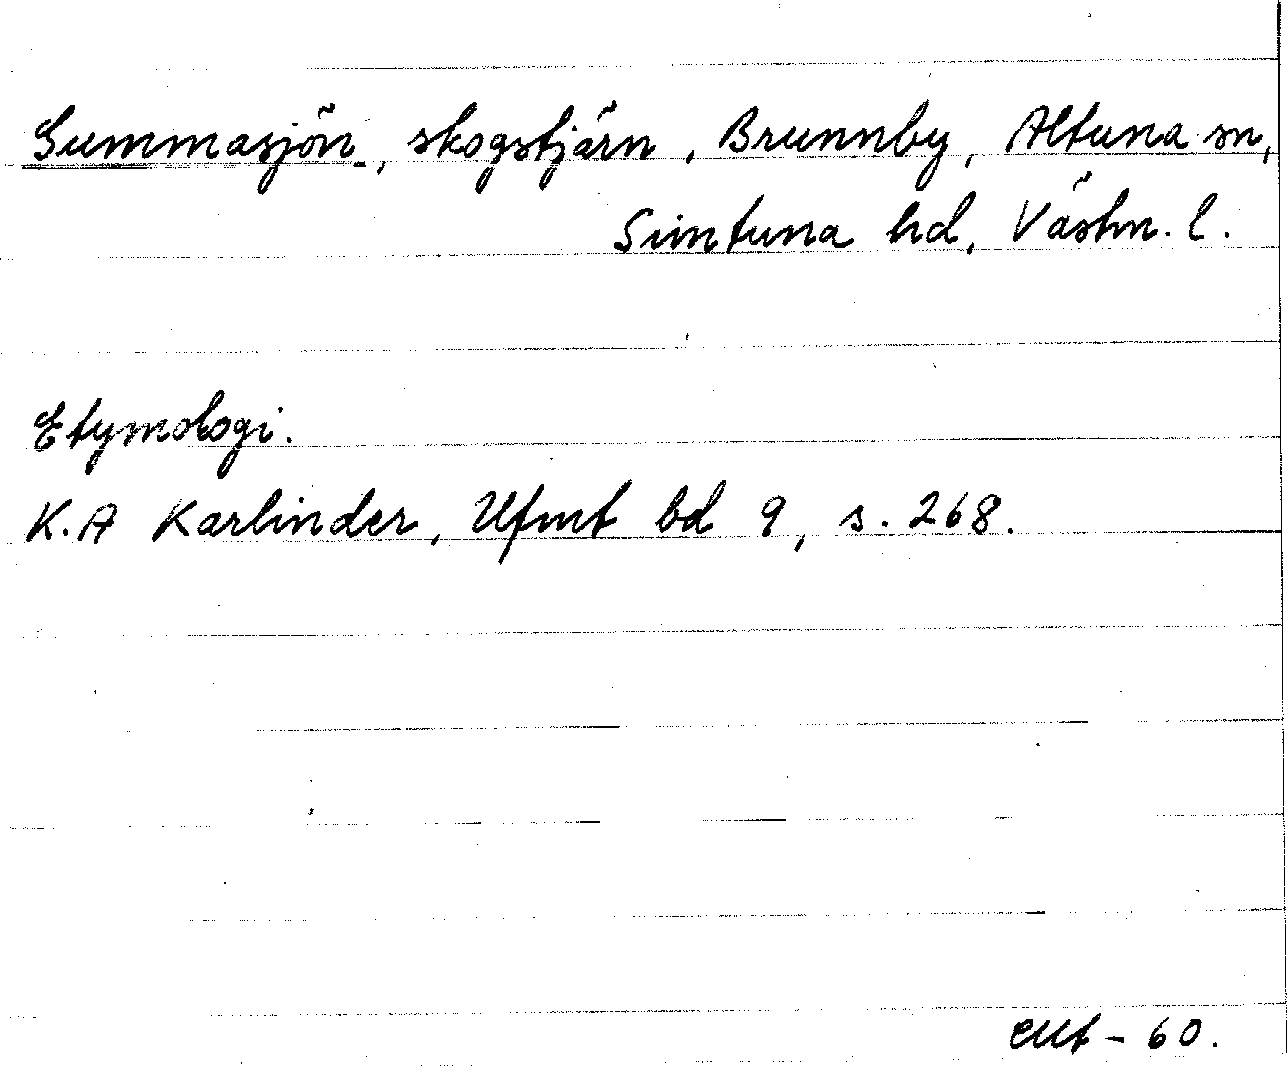 Gummasjön, skogstjärn, Brunnby, Altuna sn,
Simtuna hd, Västm. l.
Etymologi.
K.A Karlinder, Ufmt bd 9, s. 268.
60.